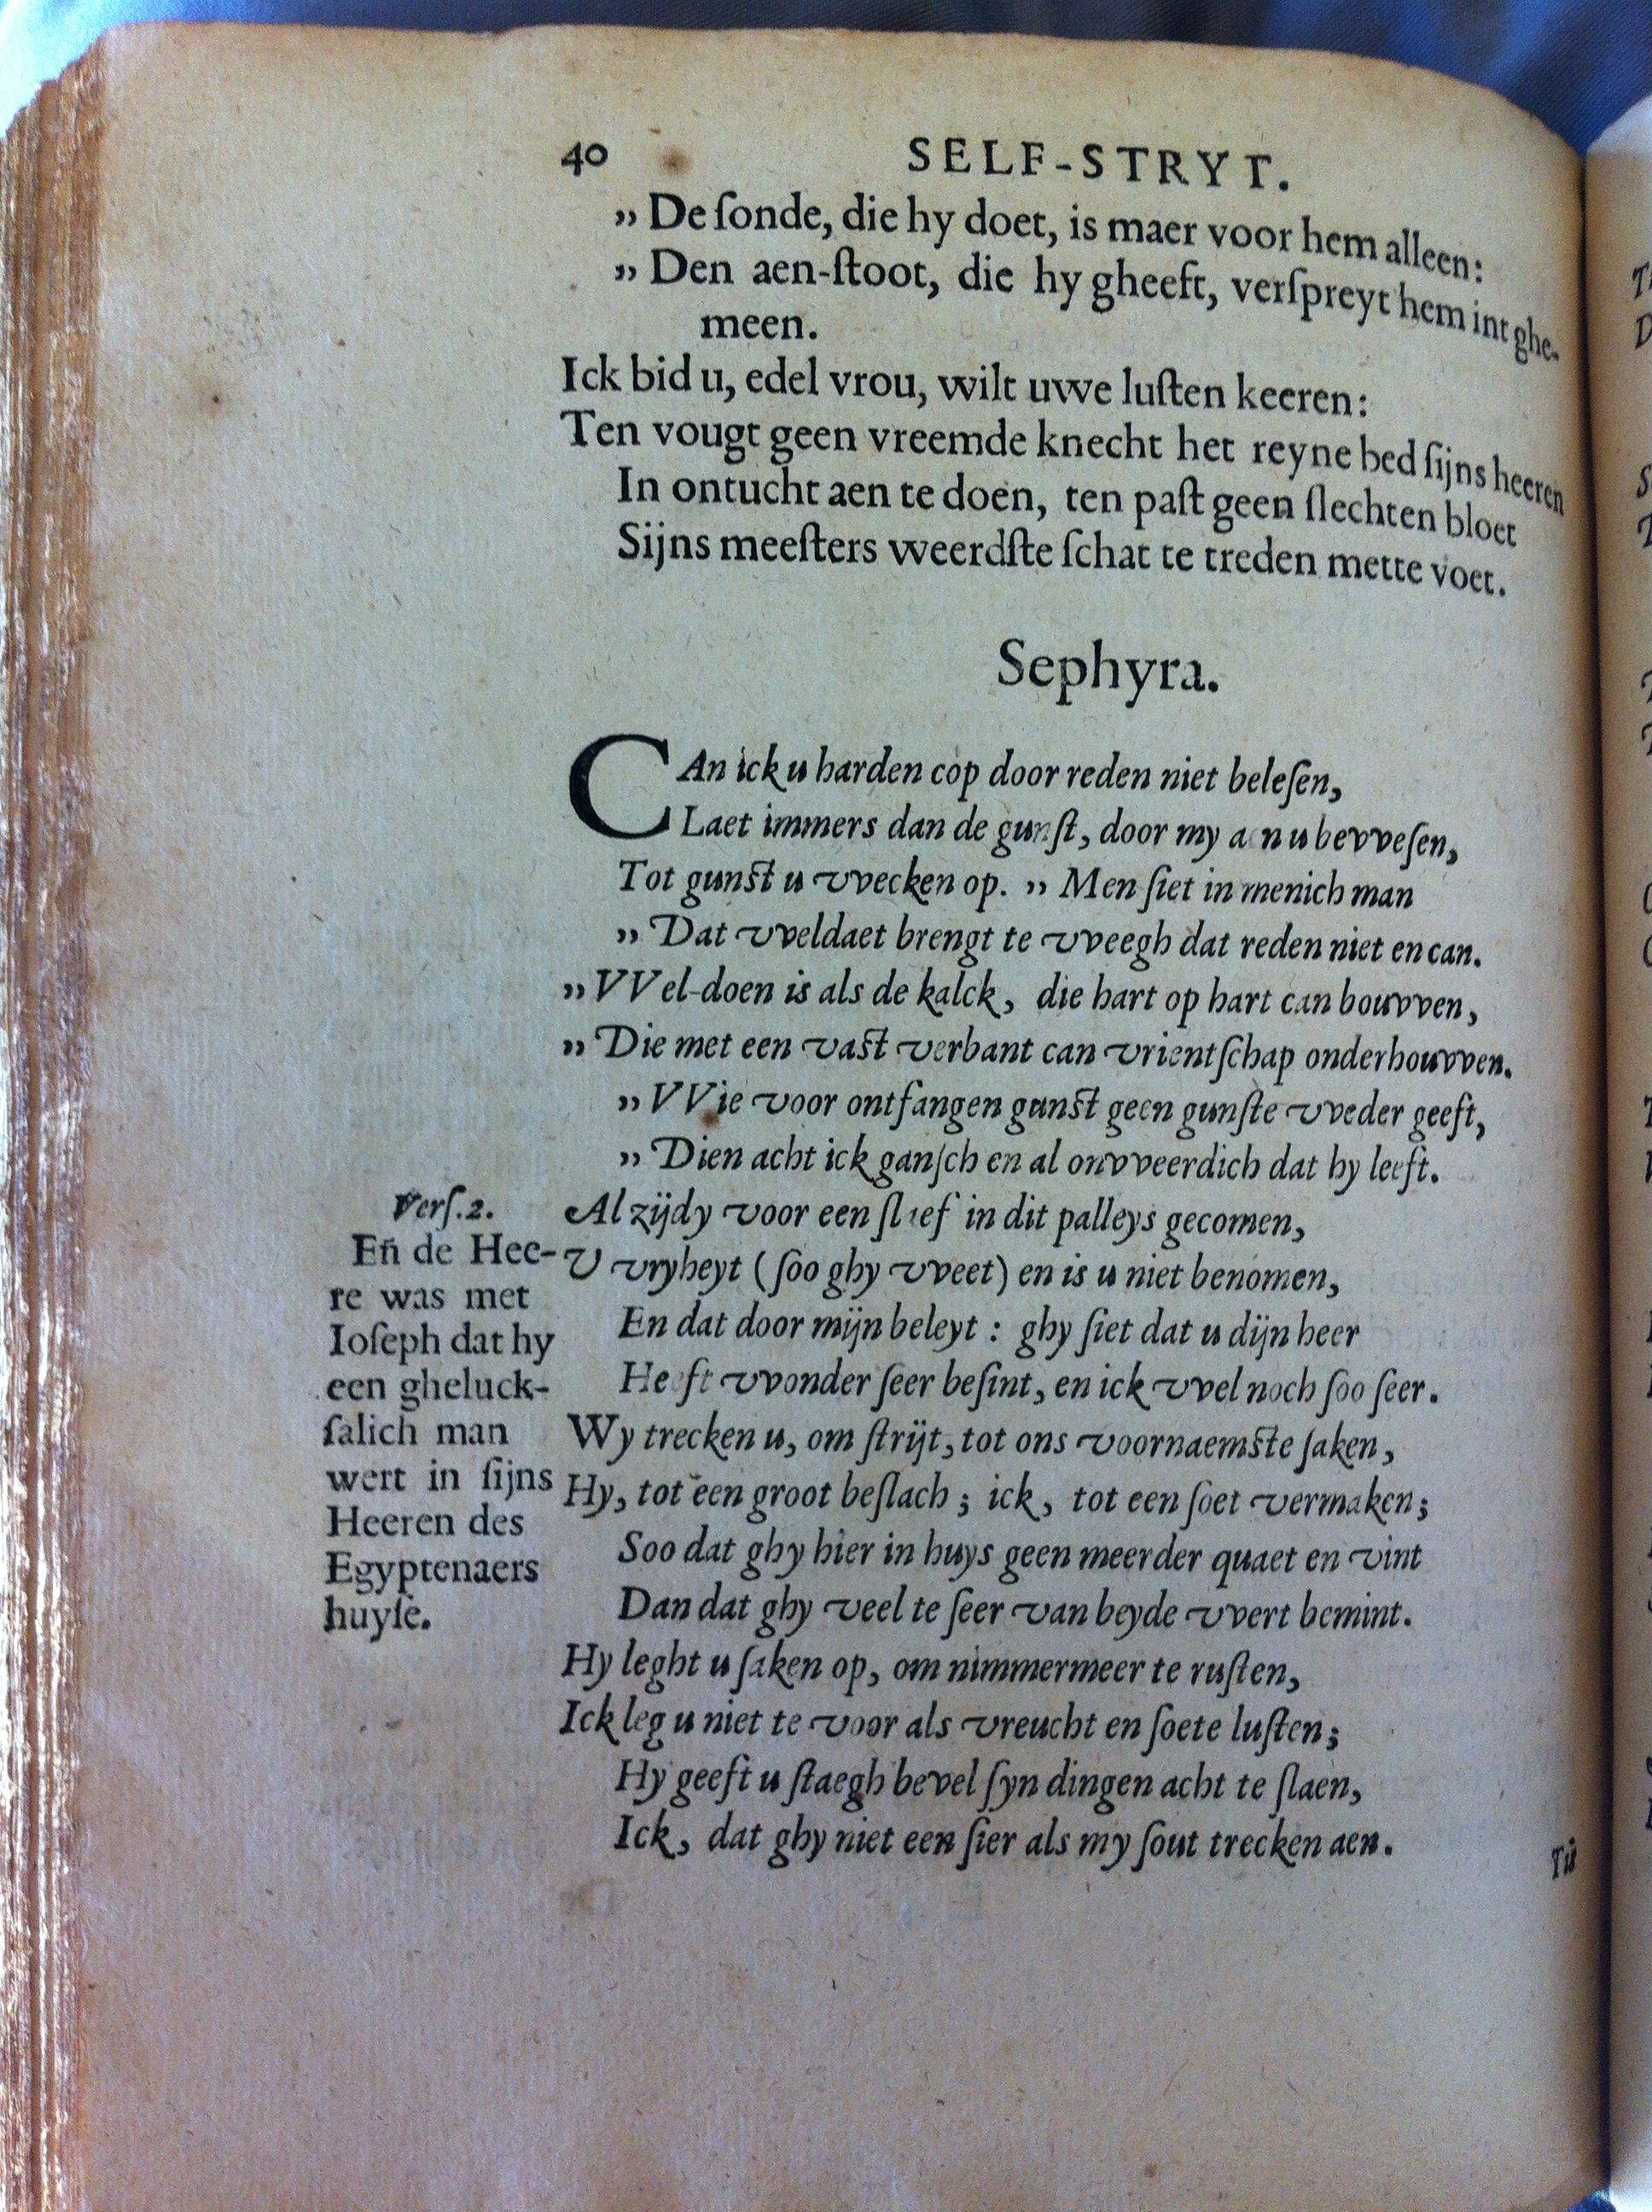 40 SELF-STRYT.
„ De ſonde, die hy doet, is maer voor hem alleen:
„ Den aen-ſtoot, die hy gheeft, verſpreyt hem int ghe-
meen.
Ick bid u, edel vrou, wilt uwe luſten keeren:
Ten vougt geen vreemde knecht het reyne bed ſijns heeren
In ontucht aen te doen, ten paſt geen ſlechten bloet
Sijns meeſters weerdſte ſchat te treden mette voet.
Sephyra.
CAn ick u harden cop door reden niet beleſen,
Laet immers dan de gunſt, door my aen u bevveſen,
Tot gunſt u vvecken op. „ Men ſiet in menich man
„ Dat vveldaet brengt te vveegh dat reden niet en can.
„ VVel-doen is als de kalck, die hart op hart can bouvven,
„ Die met een vaſt verbant can vrientſchap onderhouvven.
„ VVie voor ontfangen gunſt geen gunſte vveder geeft,
„ Dien acht ick ganſch en al onvveerdich dat hy leeft.
Al zijdy voor een ſlaef in dit palleys gecomen,
V vryheyt (ſoo ghy vveet) en is u niet benomen,
En dat door mijn beleyt : ghy ſiet dat u dijn heer
Heeft vvonder ſeer beſint, en ick vvel noch ſoo ſeer.
Wy trecken u, om ſtrijt, tot ons voornaemſte ſaken,
Hy, tot een groot beſlach ; ick, tot een ſoet vermaken;
Soo dat ghy hier in huys geen meerder quaet en vint
Dan dat ghy veel te ſeer van beyde vvert bemint.
Hy leght u ſaken op, om nimmermeer te ruſten,
Ick leg u niet te voor als vreucht en ſoete luſten;
Hy geeft u ſtaegh bevel ſyn dingen acht te ſlaen,
Ick, dat ghy niet een ſier als my ſout trecken aen.
Verſ. 2.
En̄ de Hee-
re was met
Ioſeph dat hy
een gheluck-
ſalich man
wert in ſijns
Heeren des
Egyptenaers
huyſe.